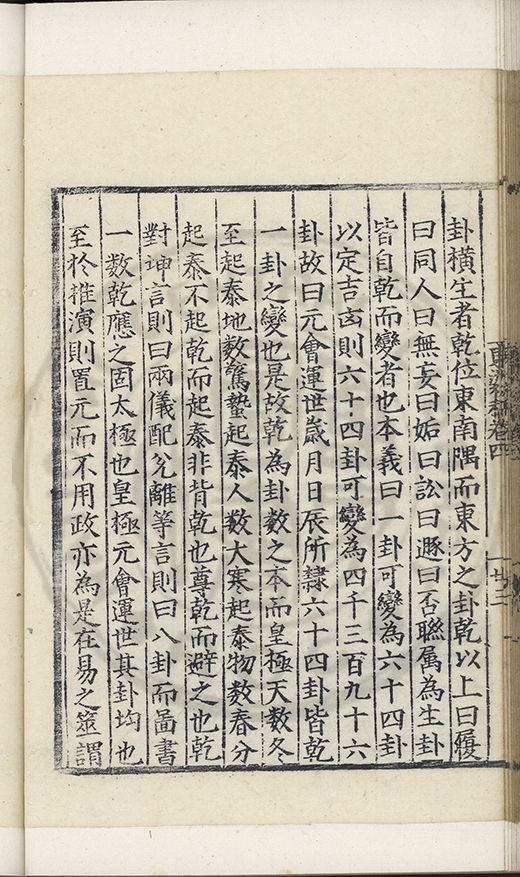 卦橫生者乾位東南隅而東方之卦乾以上曰履
曰同人曰無妄曰姤曰訟曰遯曰否聮属為生卦
皆自乾而變者也本義曰一卦可變為六十四卦
以定吉凶則六十四卦可變為四千三百九十六
卦故曰元會運世歲月日辰所隸六十四卦皆乾
一卦之變也是故乾為卦數之本而皇極天数冬
至起泰地数驚蟄起泰人数大寒起泰物数春分
起泰不起乾而起泰非背乾也尊乾而避之也乾
對坤言則曰兩儀配兊離等言則曰八卦而啚書
一数乾應之固太極也皇極元會運世其卦均也
至於推演則置元而不用政亦為是在易之筮謂
卷四
廿二